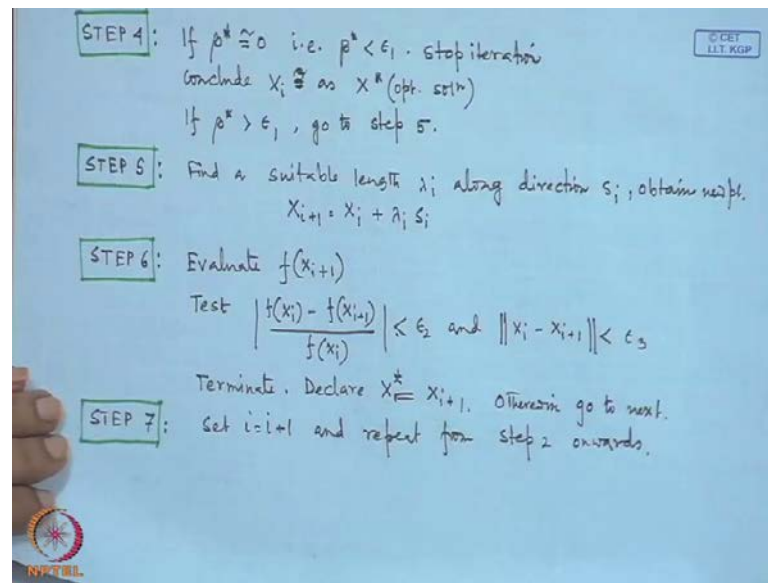 STEP 4: If β* ≅ 0 i.e. β* < ϵ₁. stop iteration
© CET
I.I.T. KGP
conclude Xᵢ ≅ as X* (opt. solⁿ)
If β* > ϵ₁, go to step 5.
STEP 5: Find a suitable length λᵢ along direction Sᵢ, obtain new pt.
Xᵢ₊₁ = Xᵢ + λᵢ Sᵢ
STEP 6: Evaluate f(Xᵢ₊₁)
Test |(f(Xᵢ) - f(Xᵢ₊₁)) / f(Xᵢ)| ≤ ϵ₂ and ‖Xᵢ - Xᵢ₊₁‖ < ϵ₃
Terminate. Declare X* = Xᵢ₊₁. Otherwise go to next.
STEP 7: Set i=i+1 and repeat from step 2 onwards.
NPTEL